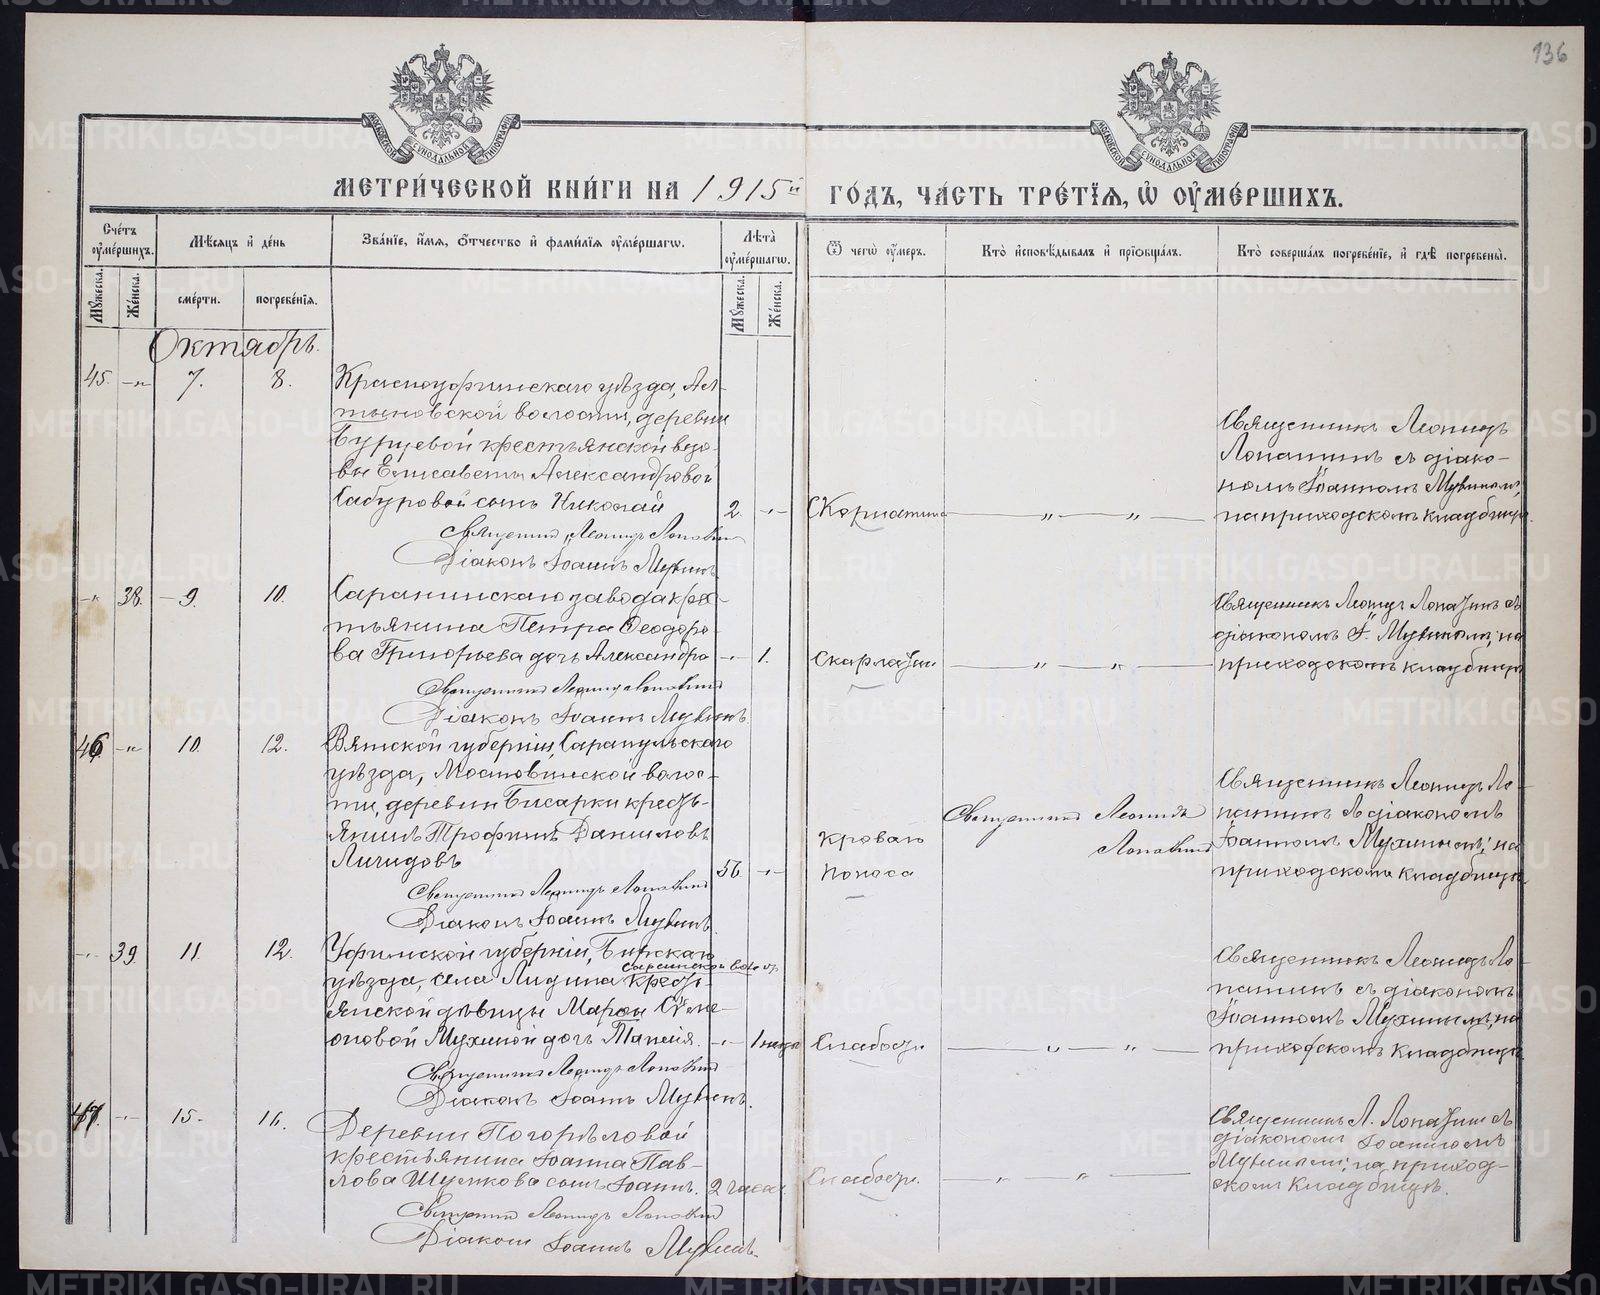 136
МЕТРИ́ЧЕСКОЙ КНИ́ГИ НА 1915й ГО́ДЪ, ЧА́СТЬ ТРЕ́ТЇѦ, Ѡ҆ ОУ҆МЕ́РШИХЪ.
Сче́тъ оу҆ме́ршихъ.
Мѣ́сяцъ и҆ де́нь
Зва́нїе, и҆́мя, ѻ҆́тчество и҆ фами́лїя оу҆ме́ршагѡ.
Лѣта̀ оу҆ме́ршагѡ.
Ѿ чегѡ̀ оу҆́меръ.
Кто̀ и҆сповѣ́дывалъ и҆ прїѻбща́лъ.
Кто̀ соверша́лъ погребе́нїе, и҆ гдѣ̀ погребены̀.
Му́жеска.
Же́нска.
сме́рти.
погребе́нїя.
Му́жеска.
Же́нска.
Октябрь.
45. -„- 7. 8. Красноуфимскаго уѣзда, Ал-
тыновской волости, деревни
Бурцевой крестьянской вдо-
вы Елисаветы Александровой
Сабуровой сынъ Николай 2. -„-
Священникъ Леонидъ Лопатинъ
Діаконъ Іоаннъ Мухинъ.
Скорлатина — „ — „ —
Священникъ Леонидъ
Лопатинъ съ діако-
номъ Іоанномъ Мухинымъ;
на приходскомъ кладбищѣ.
-„- 38. 9. 10. Саранинскаго завода кресть-
тьянина Петра Ѳеодоро-
ва Григорьева дочь Александра -„- 1.
Священникъ Леонидъ Лопатинъ
Діаконъ Іоаннъ Мухинъ
Скарлатин. — „ — „ —
Священникъ Леонидъ Лопатинъ съ
діакономъ І. Мухинымъ; на
приходскомъ кладбищѣ
46 -„- 10. 12. Вятской губерніи, Сарапульскаго
уѣзда, Мостовинской волос-
ти, деревни Бисарки кресть-
янинъ Трофимъ Даниловъ
56. -„-
Священникъ Леонидъ Лопатинъ
Діаконъ Іоаннъ Мухинъ.
Кроваго
поноса
Священникъ Леонидъ
Лопатинъ
Священникъ Леонидъ Ло-
патинъ съ діакономъ
Іоанномъ Мухинымъ; на
приходскомъ кладбищѣ.
-„- 39. 11. 12. Уфимской губерніи, Бирскаго
уѣзда, села кресть-
янской дѣвицы Марѳы Сѵме-
оновой Мухиной дочь Таисія. -„- 1
Священникъ Леонидъ Лопатинъ
Діаконъ Іоаннъ Мухинъ.
Слабост. — „ — „ —
Священникъ Леонидъ Ло-
патинъ съ діакономъ
Іоанномъ Мухинымъ, на
приходскомъ кладбищѣ.
47. -„- 15. 16. Деревни Погорѣловой
крестьянина Іоанна Пав-
лова Шумкова сынъ Іоаннъ. 2 часа.
Священникъ Леонидъ Лопатинъ
Діаконъ Іоаннъ Мухинъ.
Слабост. — „ — „ —
Священникъ Л. Лопатинъ съ
діакономъ Іоанномъ
Мухинымъ; на приход-
скомъ кладбищѣ.